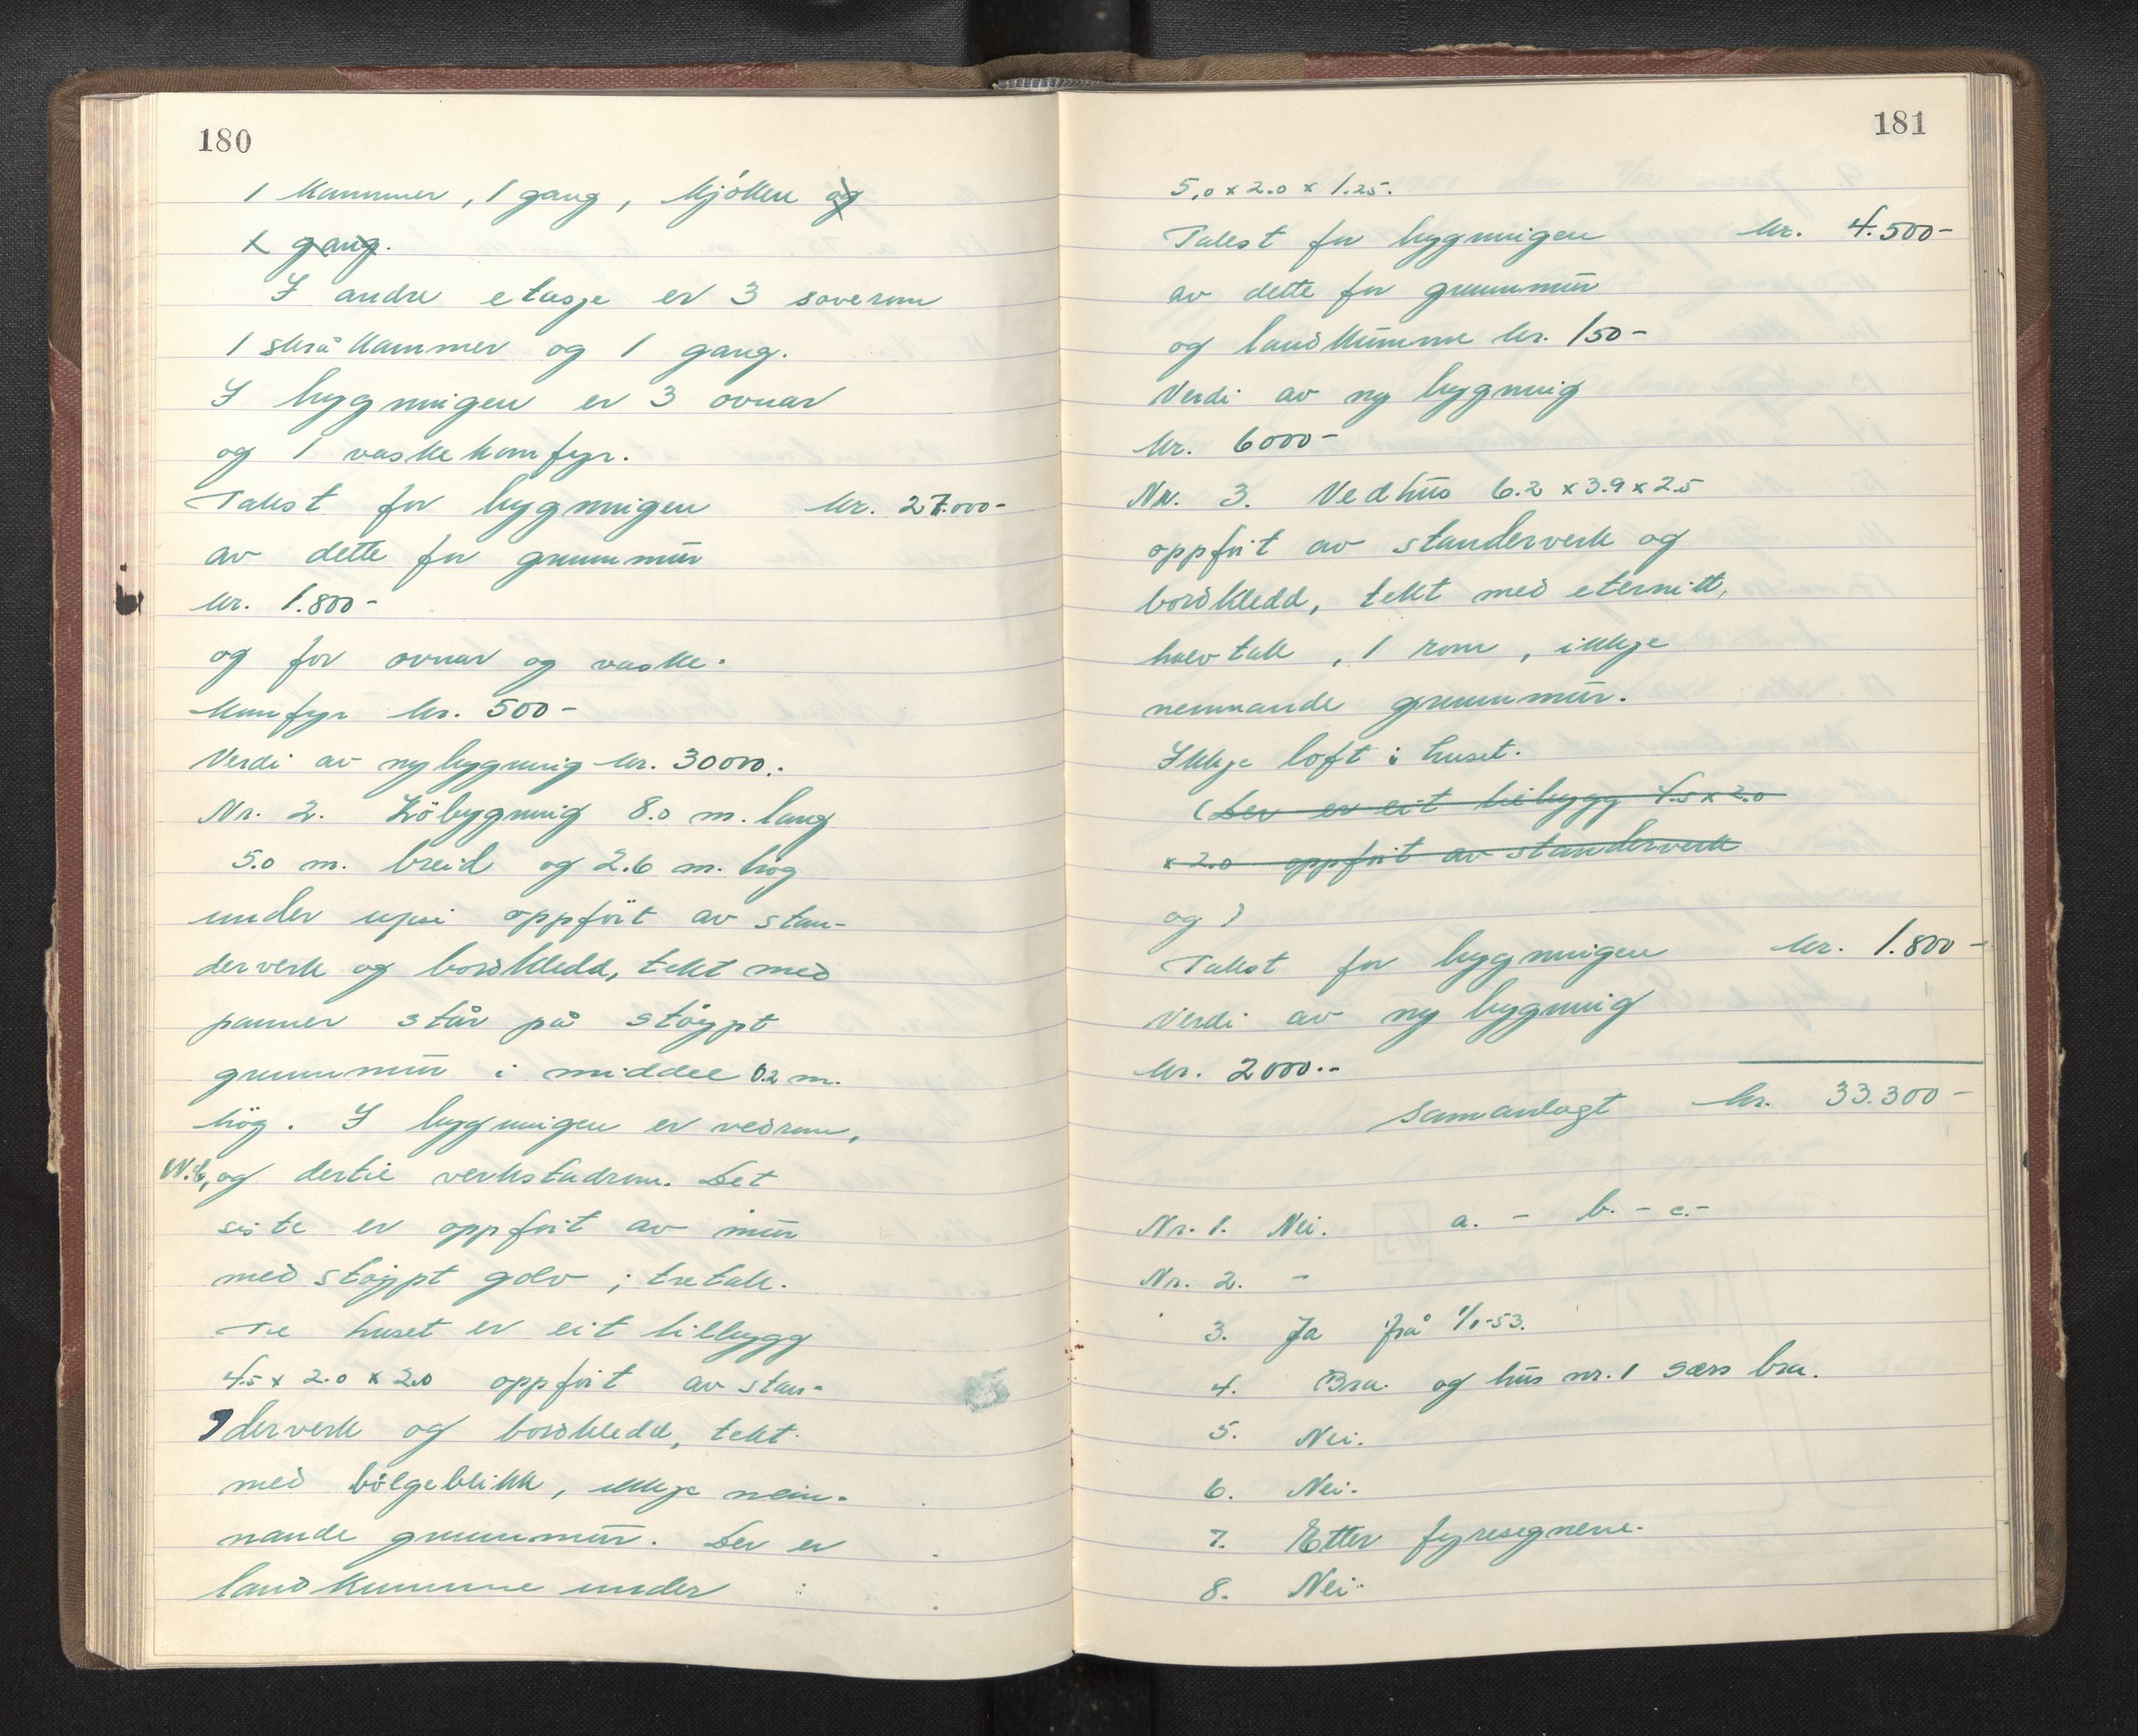 180
1 Kammer, 1 gang, kjöken og
1 gang.
I andre etasje er 3 soverom
1 skråkammer og 1 gang.
I bygningen er 3 ovnar
og 1 vaskekomfyr.
Takst for bygningen kr. 27.000-
av dette for grunnmur
kr. 1.800-
og for ovnar og vaske-
komfyr kr. 500-
Verdi av ny bygning kr. 30000.-
Nr. 2. Löbygning 8.0 m. lang
5.0 m. breid og 2.6 m. hög
under upsi oppfört av stan-
derverk og bordkledd, tekt med
panner står på stöypt
grunnmur i middel 0.2 m.
hög. I bygningen er vedrom,
W.C, og dertil verkstadrom. Det
siste er oppfört av mur
med stöypt golv i tretak.
Til huset er eit tilbygg
4.5 x 2.0 x 2.0 oppfört av stan-
derverk og bordkledd, tekt
med bölgeblikk, ikkje nem-
nande grunnmur. Der er
landkumme under
181
5.0 x 2.0 x 1.25.
Takst for bygningen kr. 4.500-
av dette for grunnmur
og landkumme kr. 150-
Verdi av ny bygning
kr. 6000-
Nr. 3. Vedhus 6.2 x 3.9 x 2.5
oppfört av standerverk og
bordkledd, tekt med eternitt,
halvtak, 1 rom, ikkje
nemnande grunnmur.
Ikkje loft i huset.
(Der er eit tilbygg 4.5 x 2.0
x 2.0 oppfört av standerverk
og )
Takst for bygningen kr. 1.800-
Verdi av ny bygning
kr. 2000.-
Samanlagt kr. 33.300-
Nr. 1. Nei. a. - b. - c.-
Nr. 2. -
3. Ja frå 1/1-53.
4. Bra. og hus nr. 1 særs bra.
5. Nei.
6. Nei.
7. Etter fyresegnene.
8. Nei.